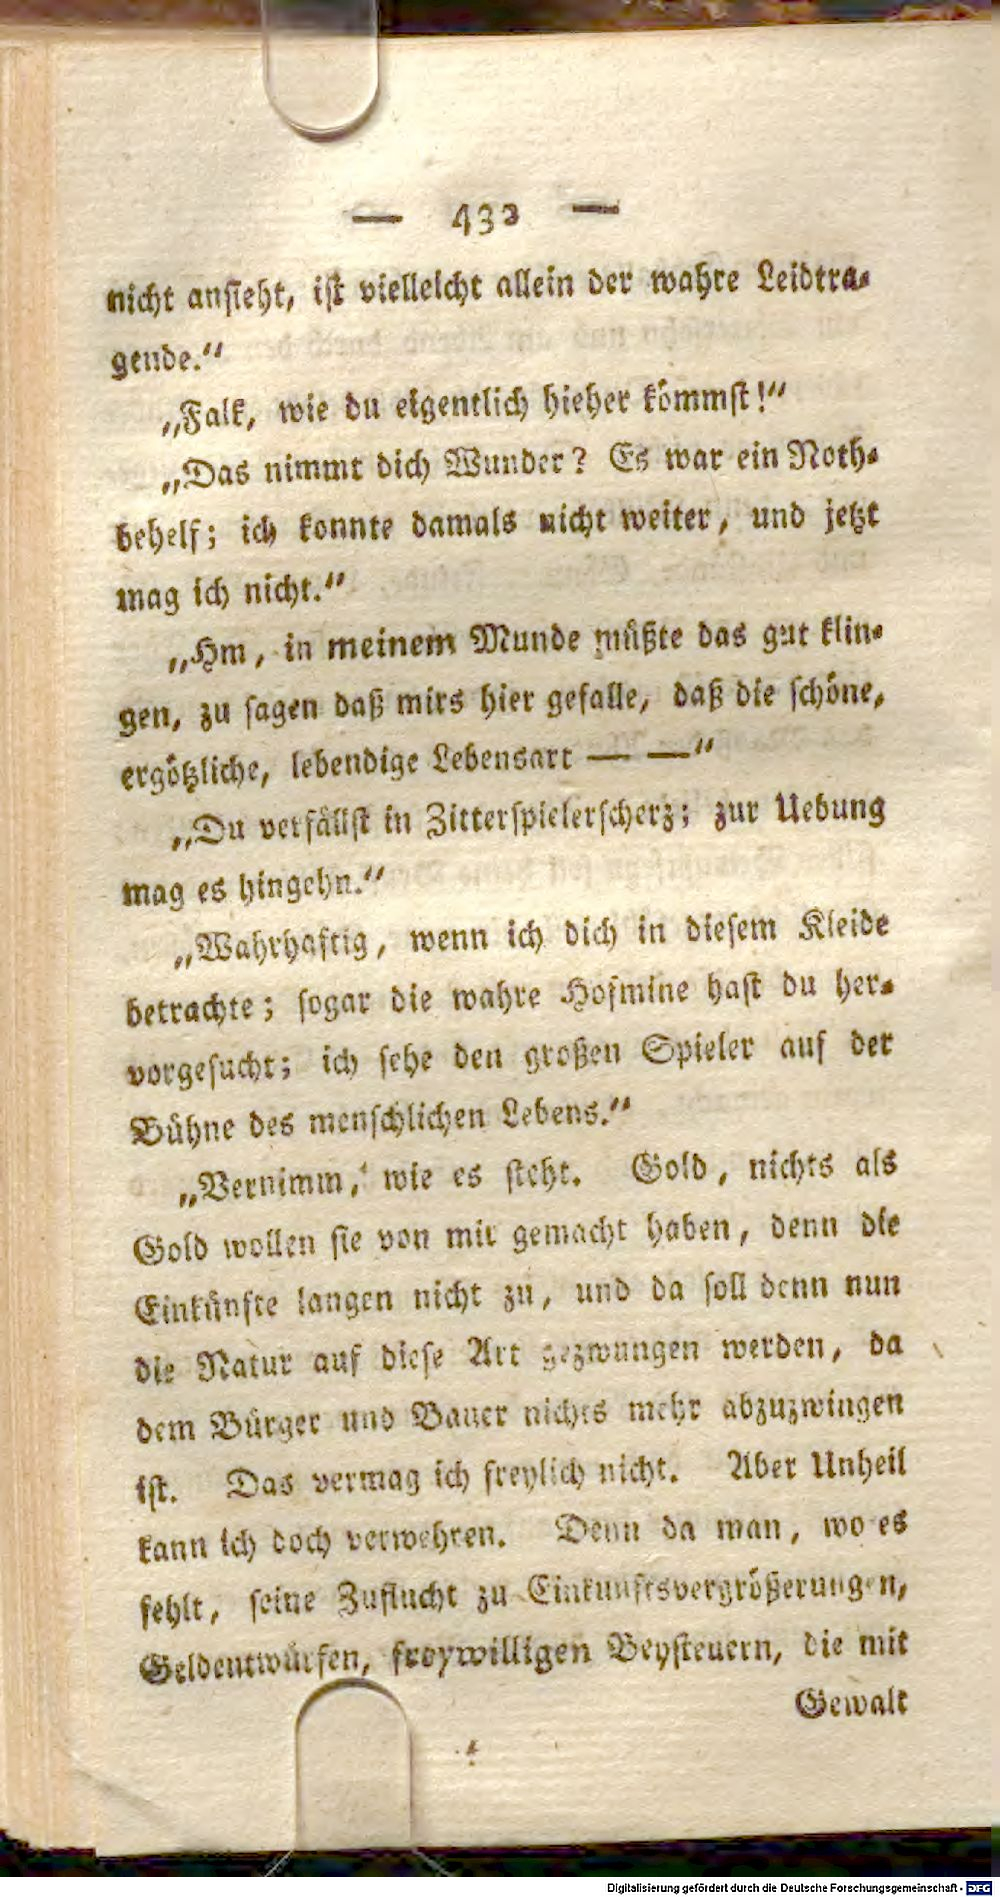 — 432 —
nicht ansieht, ist vielleicht allein der wahre Leidtra⸗
gende.“
„Falk, wie du eigentlich hieher kömmst!“
„Das nimmt dich Wunder? Es war ein Noth⸗
behelf; ich konnte damals nicht weiter, und jetzt
mag ich nicht.“
„Hm, in meinem Munde müßte das gut klin⸗
gen, zu sagen daß mirs hier gefalle, daß die schöne,
ergötzliche, lebendige Lebensart — —“
„Du verfällst in Zitterspielerscherz; zur Uebung
mag es hingehn.“
„Wahrhaftig, wenn ich dich in diesem Kleide
betrachte; sogar die wahre Hofmine hast du her⸗
vorgesucht; ich sehe den großen Spieler auf der
Bühne des menschlichen Lebens.“
„Vernimm, wie es steht. Gold, nichts als
Gold wollen sie von mir gemacht haben, denn die
Einkünfte langen nicht zu, und da soll denn nun
die Natur auf diese Art gezwungen werden, da
dem Bürger und Bauer nichts mehr abzuzwingen
ist. Das vermag ich freylich nicht. Aber Unheil
kann ich doch verwehren. Denn da man, wo es
fehlt, seine Zuflucht zu Einkunftsvergrößerungen,
Geldentwürfen, freywilligen Beysteuern, die mit
Gewalt
Digitalisierung gefördert durch die Deutsche Forschungsgemeinschaft - DFG